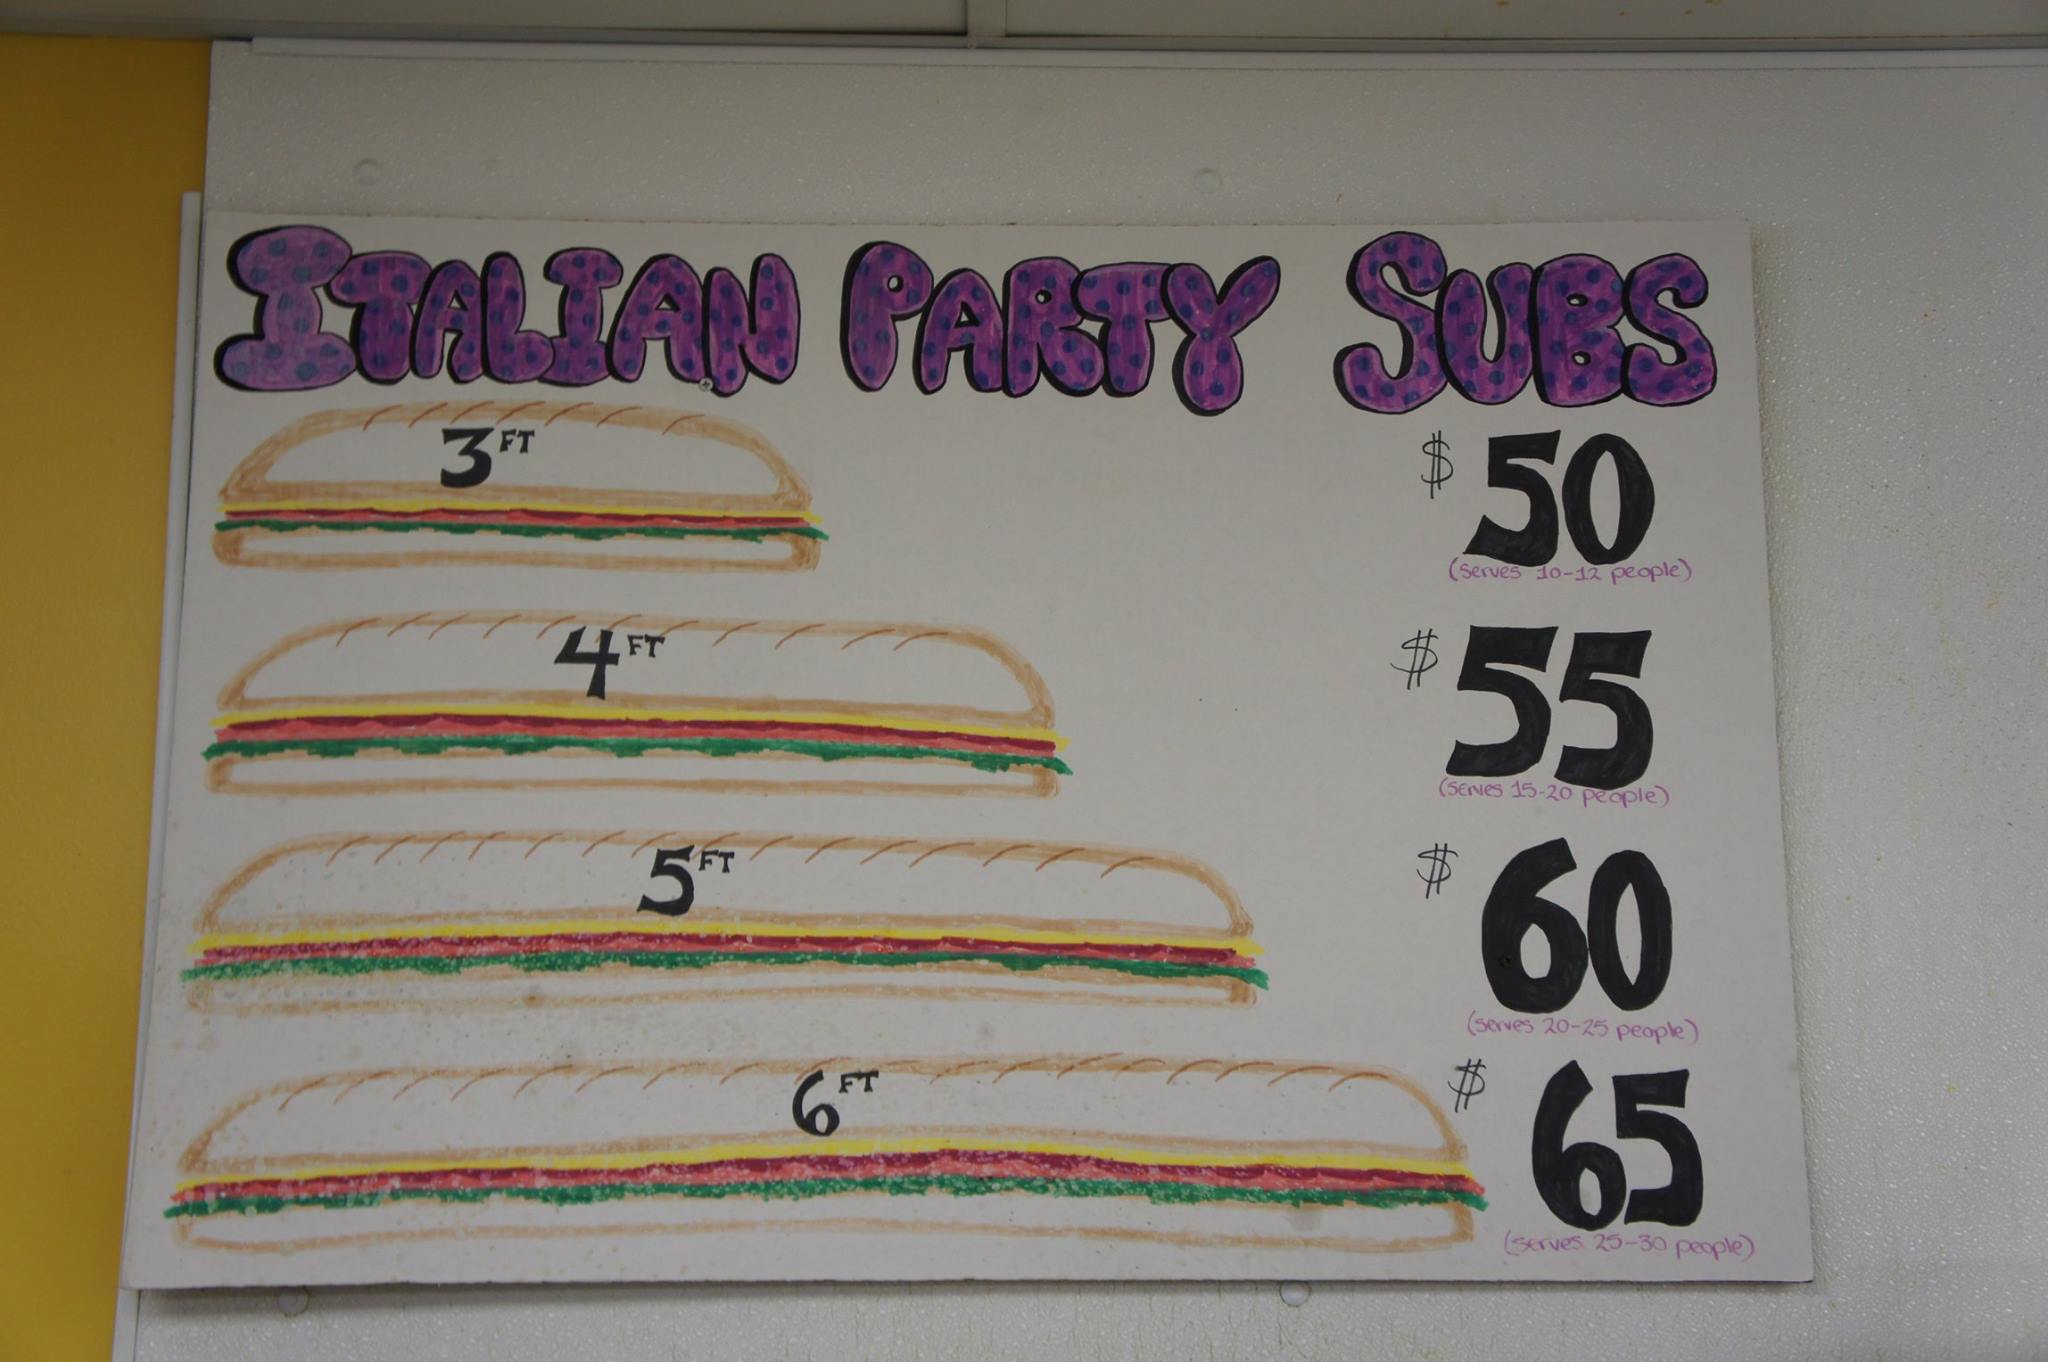 ITALIAN PARTY SUBS
3 FT $ 50
(serves 10-12 people)
4 FT $ 55
(serves 15-20 people)
5 FT $ 60
(serves 20-25 people)
6 FT $ 65
(serves 25-30 people)